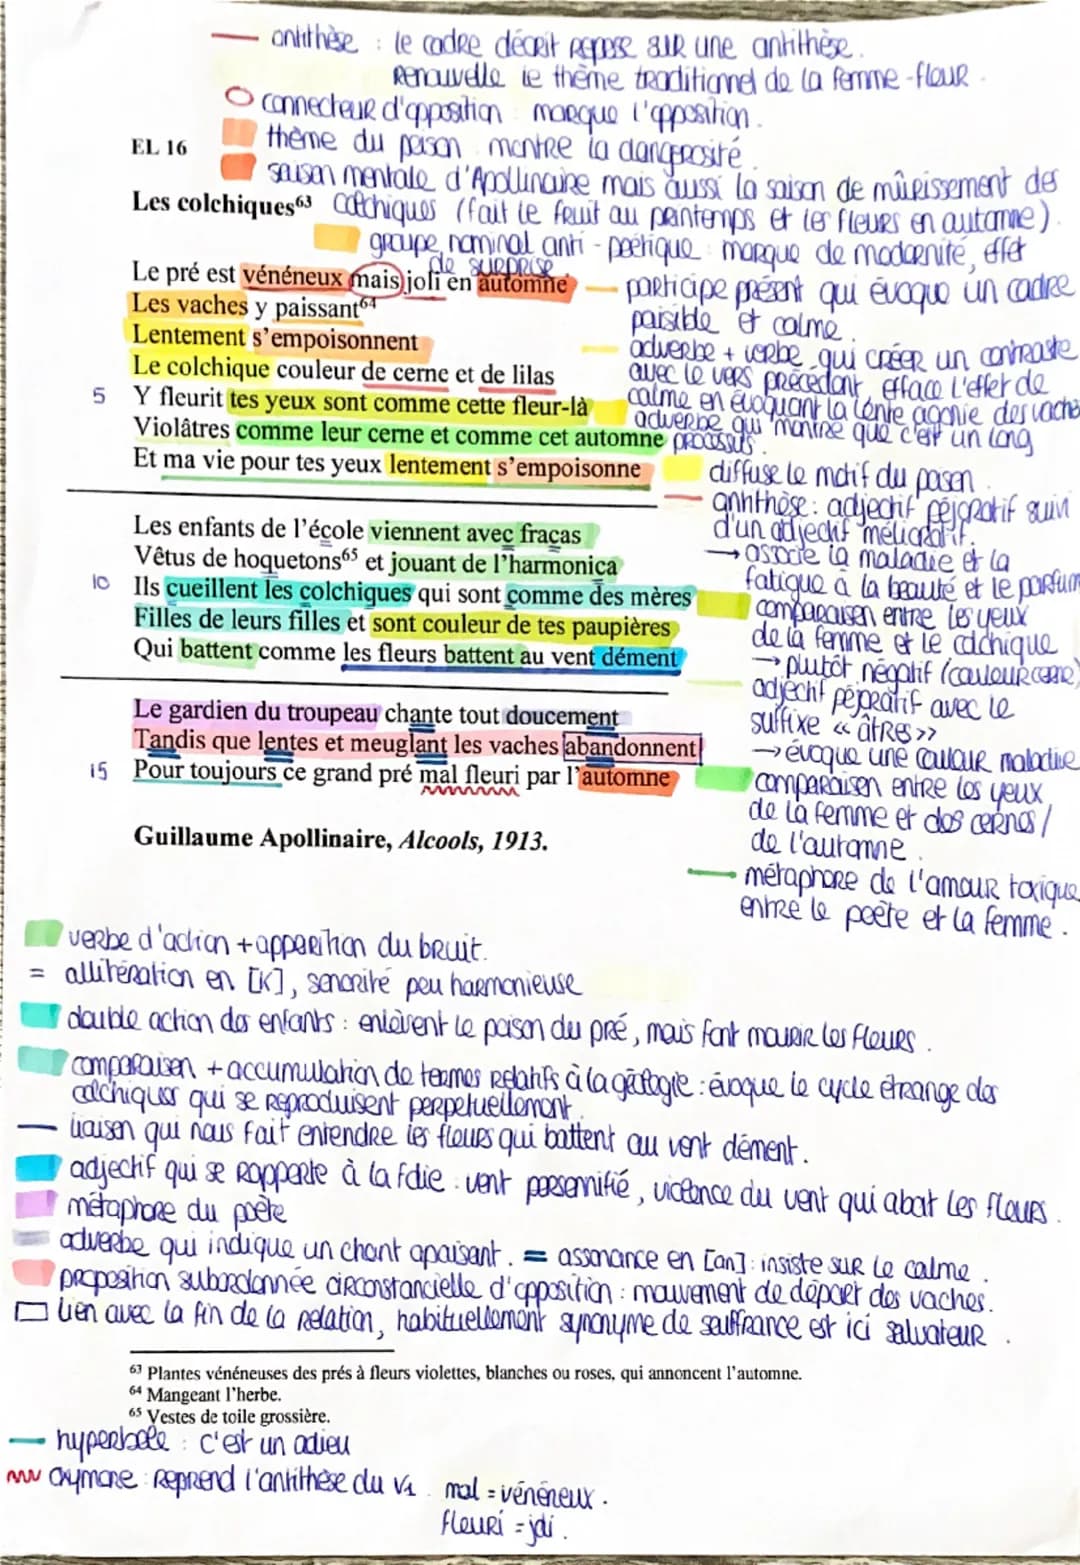 antithèse : le cadre décrit repose sur une antithèse.
Renouvelle le thème traditionnel de la femme-fleur.
connecteur d'opposition : marque l'opposition.
EL 16
thème du poison montre la dangerosité.
saison mentale d'Apollinaire mais aussi la saison de mûrissement des
Les colchiques⁶³ colchiques (fait le fruit au printemps et les fleurs en automne).
groupe nominal anti-poétique : marque de modernité, effet
de surprise
Le pré est vénéneux mais joli en automne
Les vaches y paissant⁶⁴
Lentement s'empoisonnent
Le colchique couleur de cerne et de lilas
5 Y fleurit tes yeux sont comme cette fleur-là
Violâtres comme leur cerne et comme cet automne
Et ma vie pour tes yeux lentement s'empoisonne
participe présent qui évoque un cadre
paisible et calme.
adverbe + verbe qui créer un contraste
avec le vers précédant, efface l'effet de
calme en évoquant la lente agonie des vaches
adverbe qui montre que c'est un long
processus.
diffuse le motif du poison.
antithèse : adjectif péjoratif suivi
d'un adjectif mélioratif.
→ associe la maladie et la
fatigue à la beauté et le parfum
Les enfants de l'école viennent avec fracas
Vêtus de hoquetons⁶⁵ et jouant de l'harmonica
10 Ils cueillent les colchiques qui sont comme des mères
Filles de leurs filles et sont couleur de tes paupières
Qui battent comme les fleurs battent au vent dément
comparaison entre les yeux
de la femme et le colchique
→ plutôt négatif (couleur cerne)
adjectif péjoratif avec le
suffixe « âtres »
→ évoque une couleur maladive
Le gardien du troupeau chante tout doucement
Tandis que lentes et meuglant les vaches abandonnent
15 Pour toujours ce grand pré mal fleuri par l'automne
comparaison entre les yeux
de la femme et des cernes /
de l'automne.
Guillaume Apollinaire, Alcools, 1913.
métaphore de l'amour toxique
entre le poète et la femme.
verbe d'action + apparition du bruit.
= allitération en [K], sonorité peu harmonieuse
double action des enfants : enlèvent le poison du pré, mais font mourir les fleurs.
comparaison + accumulation de termes relatifs à la : évoque le cycle étrange des
colchiques qui se reproduisent perpetuellement.
liaison qui nous fait entendre les fleurs qui battent au vent dément.
adjectif qui se rapporte à la folie : vent personnifié, violence du vent qui abat les fleurs.
métaphore du poète
adverbe qui indique un chant apaisant. = assonance en [an] : insiste sur le calme.
proposition subordonnée circonstancielle d'opposition : mouvement de départ des vaches.
lien avec la fin de la relation, habituellement synonyme de souffrance est ici salvateur.
⁶³ Plantes vénéneuses des prés à fleurs violettes, blanches ou roses, qui annoncent l'automne.
⁶⁴ Mangeant l'herbe.
⁶⁵ Vestes de toile grossière.
hyperbole : c'est un adieu
oxymore : reprend l'antithèse du v1. mal = vénéneux.
fleuri = joli.